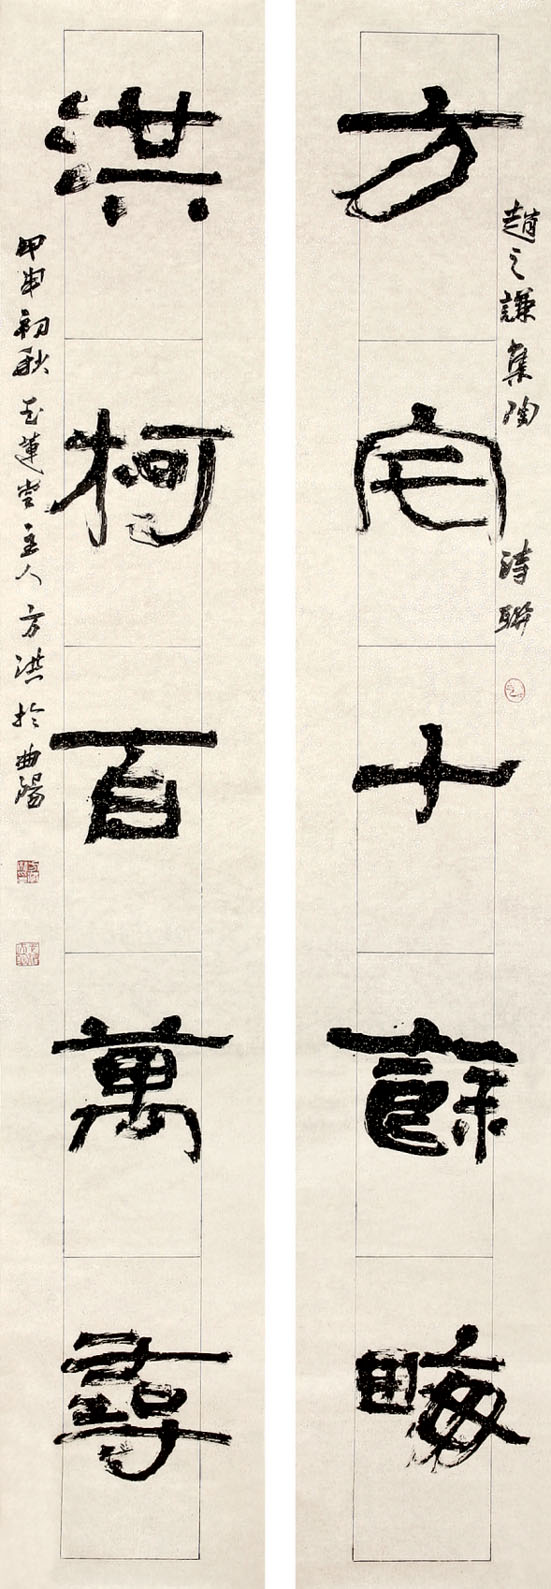 趙之謙集陶詩聯
方宅十餘畮
洪柯百萬尋
甲申初秋蓮堂主人方洪於曲陽